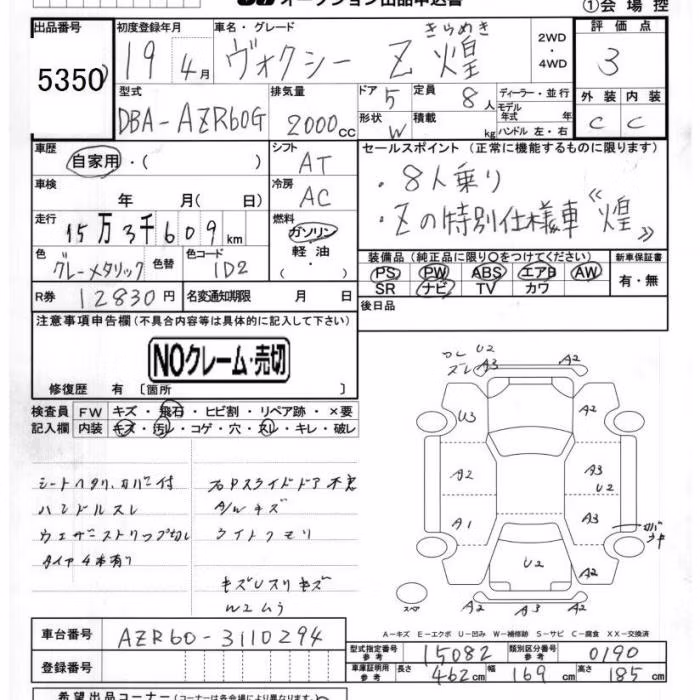 オークション出品申込書
①会場控
出品番号 初度登録年月 車名・グレード 評価点
5350 19 4月 ヴォクシー Z 煌 きらめき 2WD・4WD 3
型式 排気量 ドア 5 定員 8人 ディーラー・並行 外装 内装
DBA-AZR60G 2000cc 形状 W 積載 kg モデル年式 年 C C
ハンドル 左・右
車歴 自家用・( ) シフト AT セールスポイント (正常に機能するものに限ります)
車検 年 月( 日) 冷房 AC ・8人乗り
走行 15万3千609km 燃料 ガソリン・軽油・ ・Zの特別仕様車 “煌”
色 グレーメタリック 色替 色コード 1D2 装備品 (純正品に限り○をつけてください) 新車保証書
PS PW ABS エアB AW 有・無
SR ナビ TV カワ
R券 12830円 名変通知期限 月 日 後日品
注意事項申告欄(不具合内容等は具体的に記入して下さい)
NOクレーム・売切
修復歴 有 〔箇所 〕
検査員 FW キズ・飛石・ヒビ割・リペア跡・×要
記入欄 内装 キズ・汚レ・コゲ・穴・スレ・キレ・破レ
シートヘタリ、カバー付
ハンドルスレ
ウェザーストリップ切レ
タイヤ4本有り
右Pスライドドア不良
A/Wキズ
ライトクモリ
キズUスリキズ
W2ムラ
カレ U2
ズレ A3 A2
U3 A2
A2 A3 U2
A1 A3
U2 A2
スペア A2 A3 A2
A-キズ E-エクボ U-凹み W-補修跡 S-サビ C-腐食 XX-交換済
車台番号 AZR60-3110294
型式指定番号 参考 15082 類別区分番号 参考 0190
登録番号 車庫証明用 参考 長さ 462cm 幅 169cm 高さ 185cm
希望出品コーナー(コーナーは各会場により異なります)